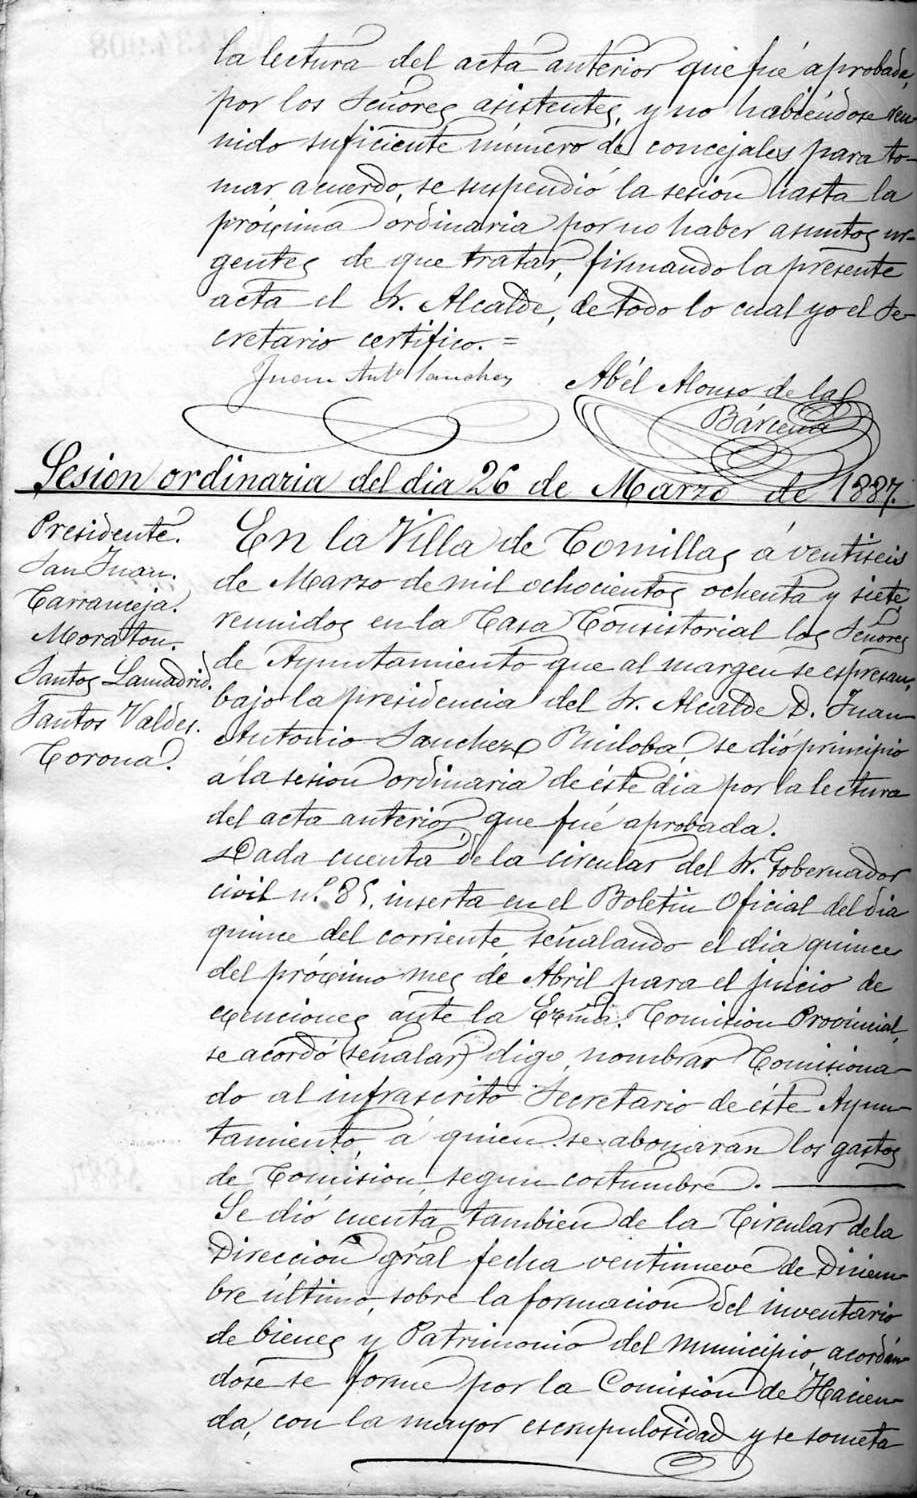 la lectura del acta anterior que fué aprobada,
por los Señores asistentes, y no habiéndose reu-
nido suficiente número de concejales para to-
mar acuerdo, se suspendió la sesion hasta la
próxima ordinaria por no haber asuntos ur-
gentes de que tratar, firmando la presente
acta el Sr. Alcalde, de todo lo cual yo el Se-
cretario certifico. =
Juan Antº Sanchez
Abél Alonso de la
Bárcena
Sesion ordinaria del dia 26 de Marzo de 1887.
Presidente.
San Juan.
Tarranceja.
Moraton.
Santos Lamadrid.
Santos Valdes.
Corona.
En la Villa de Comillas á ventiseis
de Marzo de mil ochocientos ochenta y siete,
reunidos en la Casa Consistorial los Señores
de Ayuntamiento que al margen se espresan,
bajo la presidencia del Sr. Alcalde D. Juan
Antonio Sanchez Ruiloba, se dió principio
á la sesion ordinaria de éste dia por la lectura
del acta anterior que fué aprobada.
Dada cuenta de la circular del Sr. Gobernador
civil nº 85, inserta en el Boletin Oficial del dia
quince del corriente señalando el dia quince
del próximo mes de Abril para el juicio de
exenciones ante la Exma. Comision Provincial,
se acordó (señalar) digo, nombrar Comisiona-
do al infrascrito Secretario de éste Ayun-
tamiento, á quien se abonaran los gastos
de Comision, segun costumbre.
Se dió cuenta tambien de la Circular de la
Direccion gral fecha ventinueve de Diciem-
bre último, sobre la formacion del inventario
de bienes y Patrimonio del municipio, acordán-
dose se forme por la Comision de Hacien-
da, con la mayor escrupulosidad y se someta